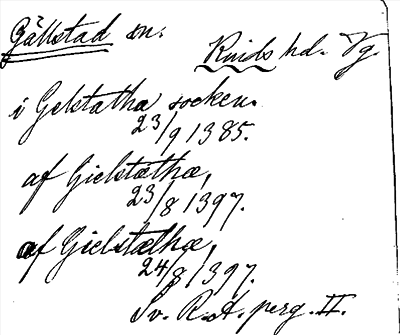 Gällstad sn. Kinds hd. Vg.
i Gelstatha socken.
23/9 1385.
af Gielstætha,
23/8 1397.
af Gielstætha,
24/8 1397.
Sv. R.A. perg. II.